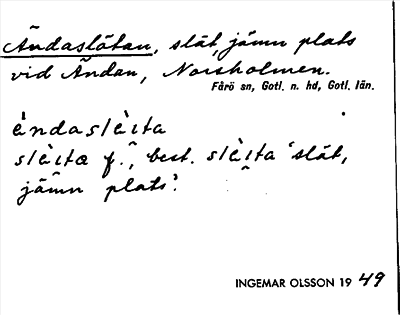 Ändaslätan, slät, jämn plats
vid Ändan, Norsholmen.
Fårö sn, Gotl. n. hd, Gotl. län.
èndaslèıta
slèıtα f., best. slèıta ‘slät,
jämn plats’.
INGEMAR OLSSON 1949